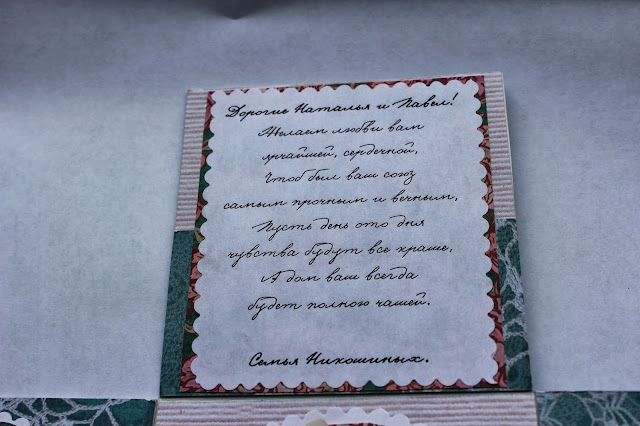 Дорогие Наталья и Павел!
Желаем любви вам
ярчайшей, сердечной,
Чтоб был ваш союз
самым прочным и вечным,
Пусть день ото дня
чувства будут все краше,
А дом ваш всегда
будет полною чашей.
Семья Никошиных.